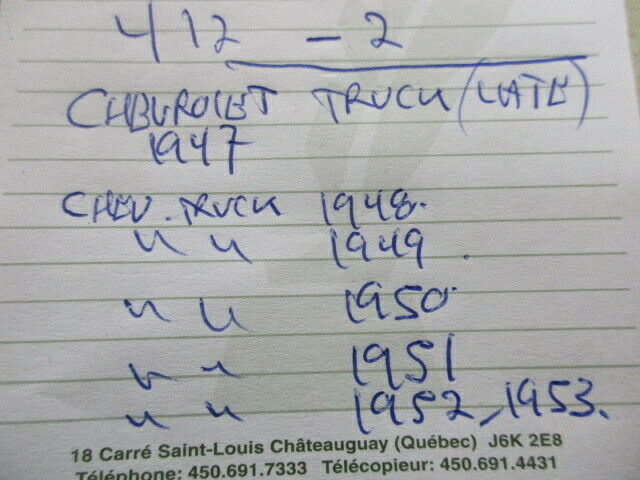 412 - 2
CHEVROLET TRUCK (LATE)
1947
CHEV. TRUCK 1948.
" " 1949.
" " 1950.
" " 1951
" " 1952, 1953.
18 Carré Saint-Louis Châteauguay (Québec) J6K 2E8
Téléphone: 450.691.7333 Télécopieur: 450.691.4431